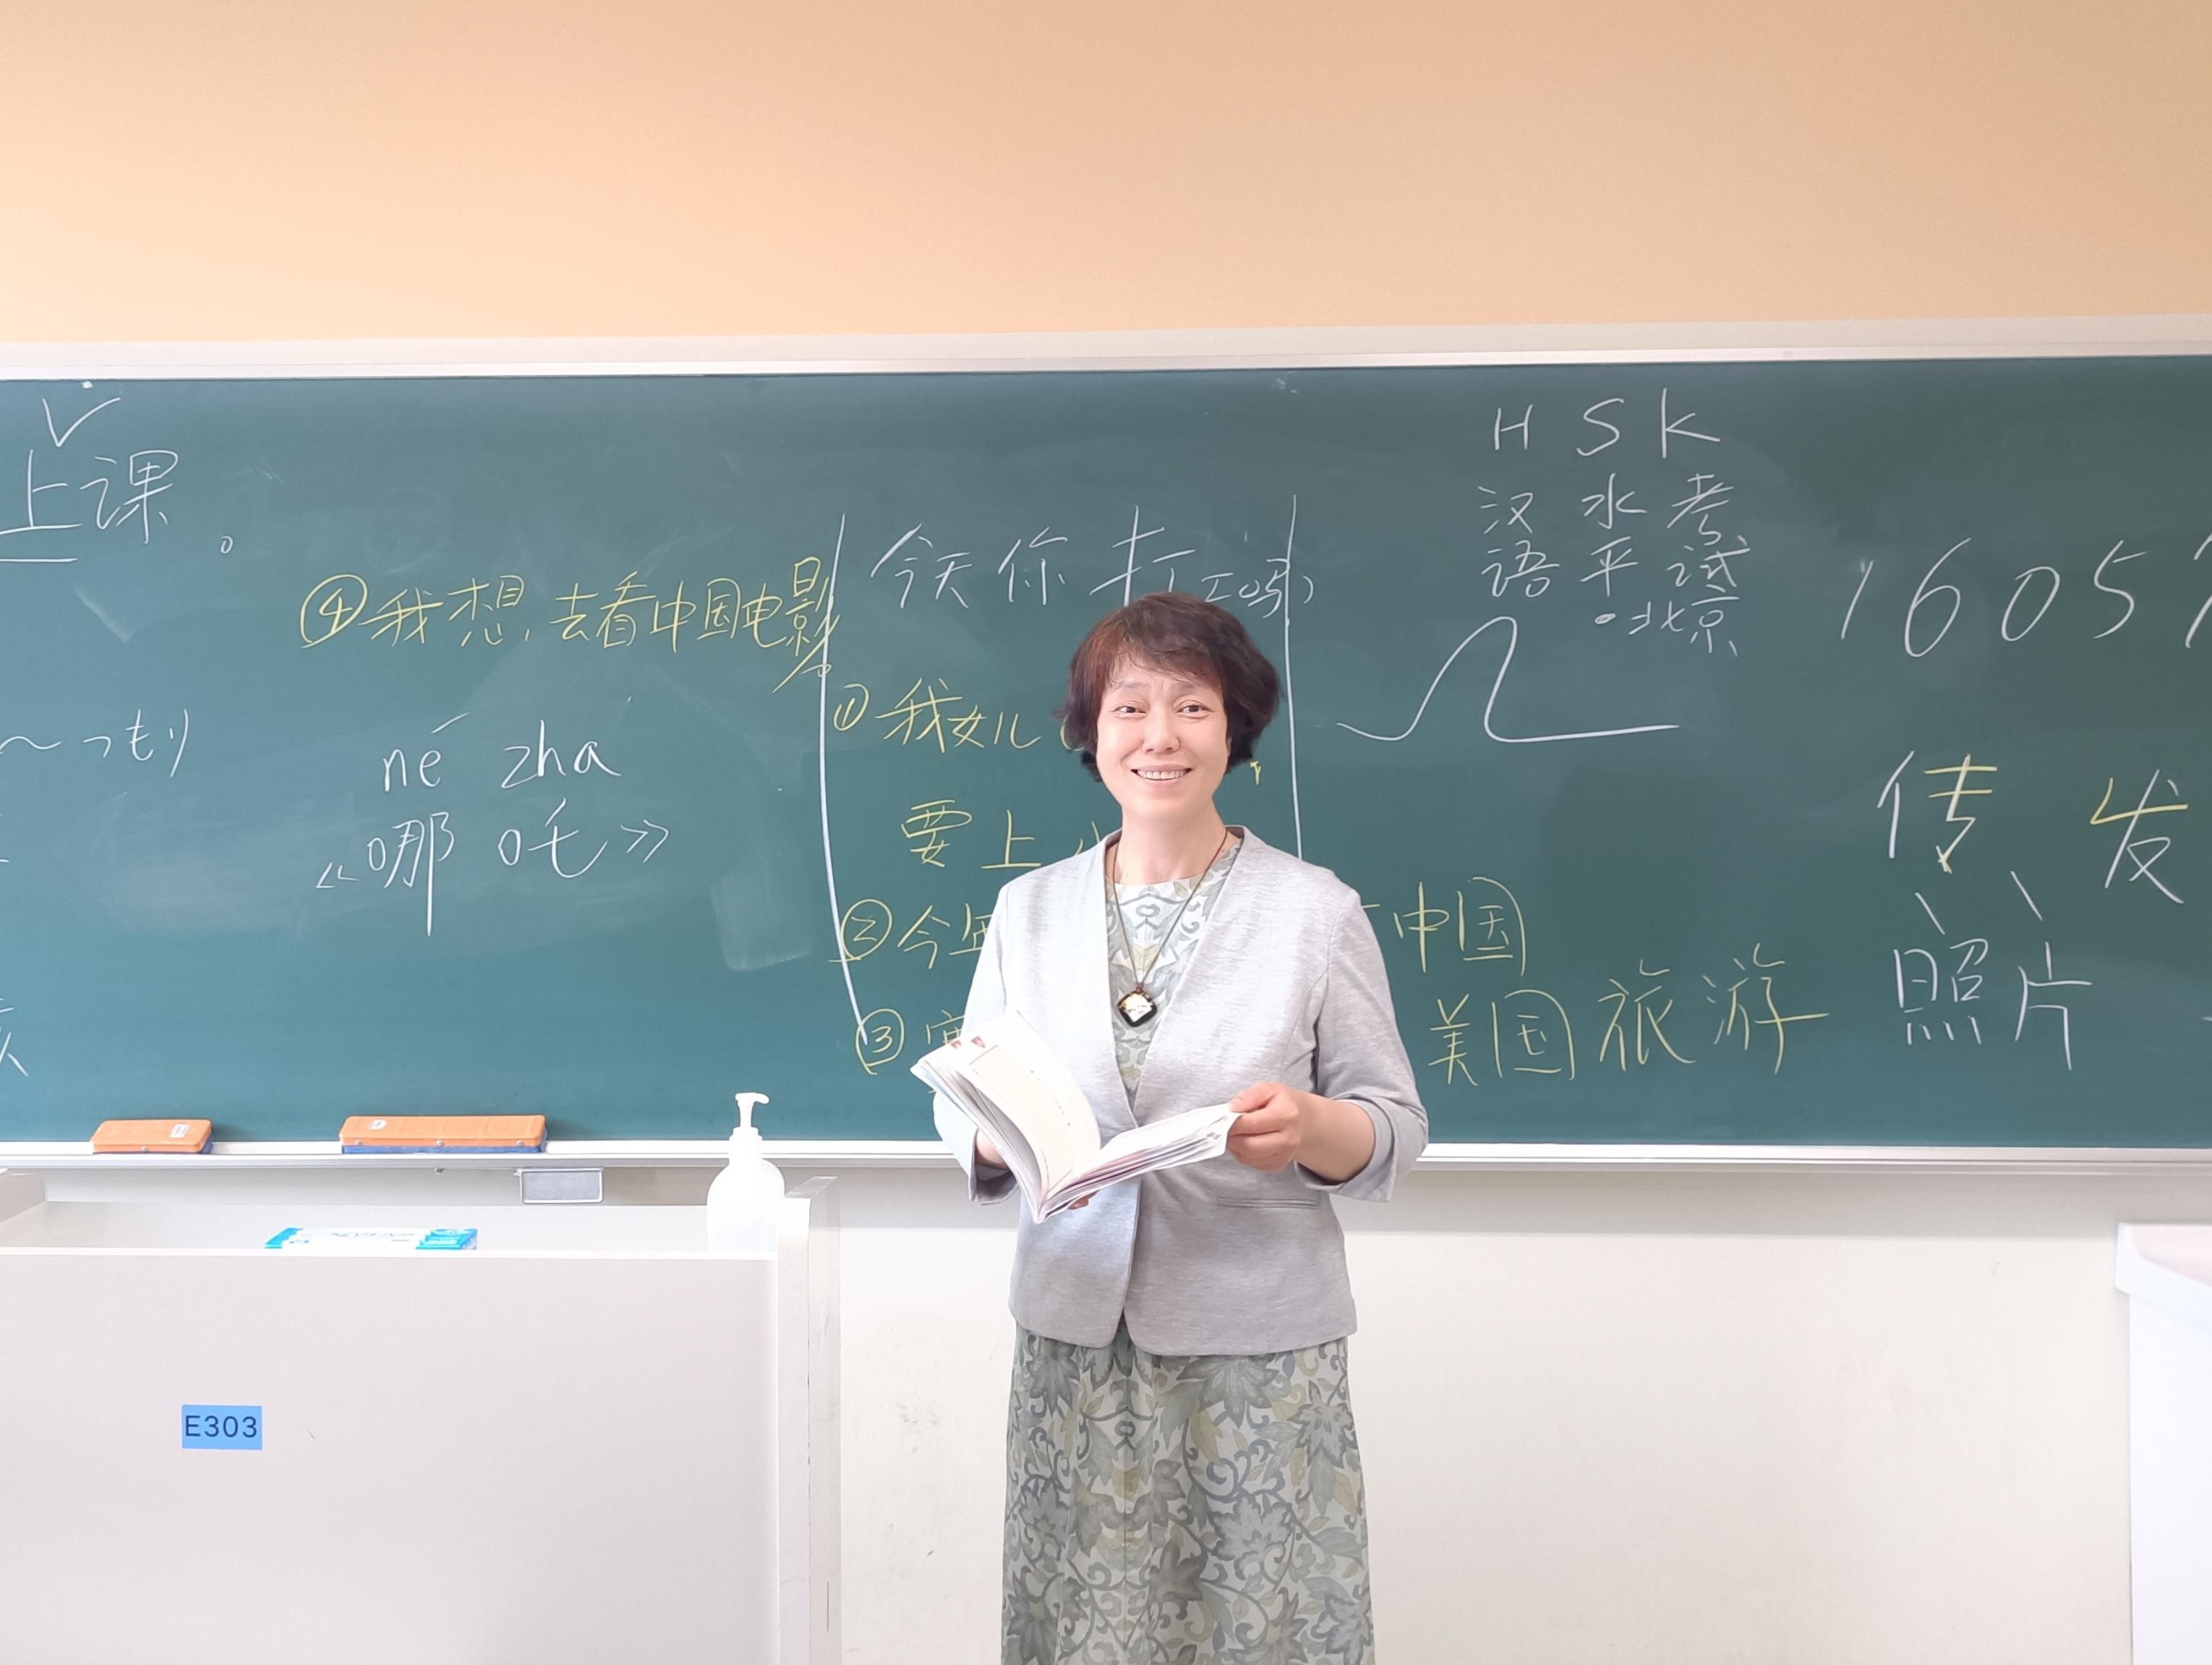 上课。
④我想去看中国电影。
～つもり
né zha
《哪吒》
今天你打工吗
①我女儿
要上
②今年
中国
③
美国旅游
H S K
汉 水 考
语 平 试
·北京
1605
传 发
照片
E303